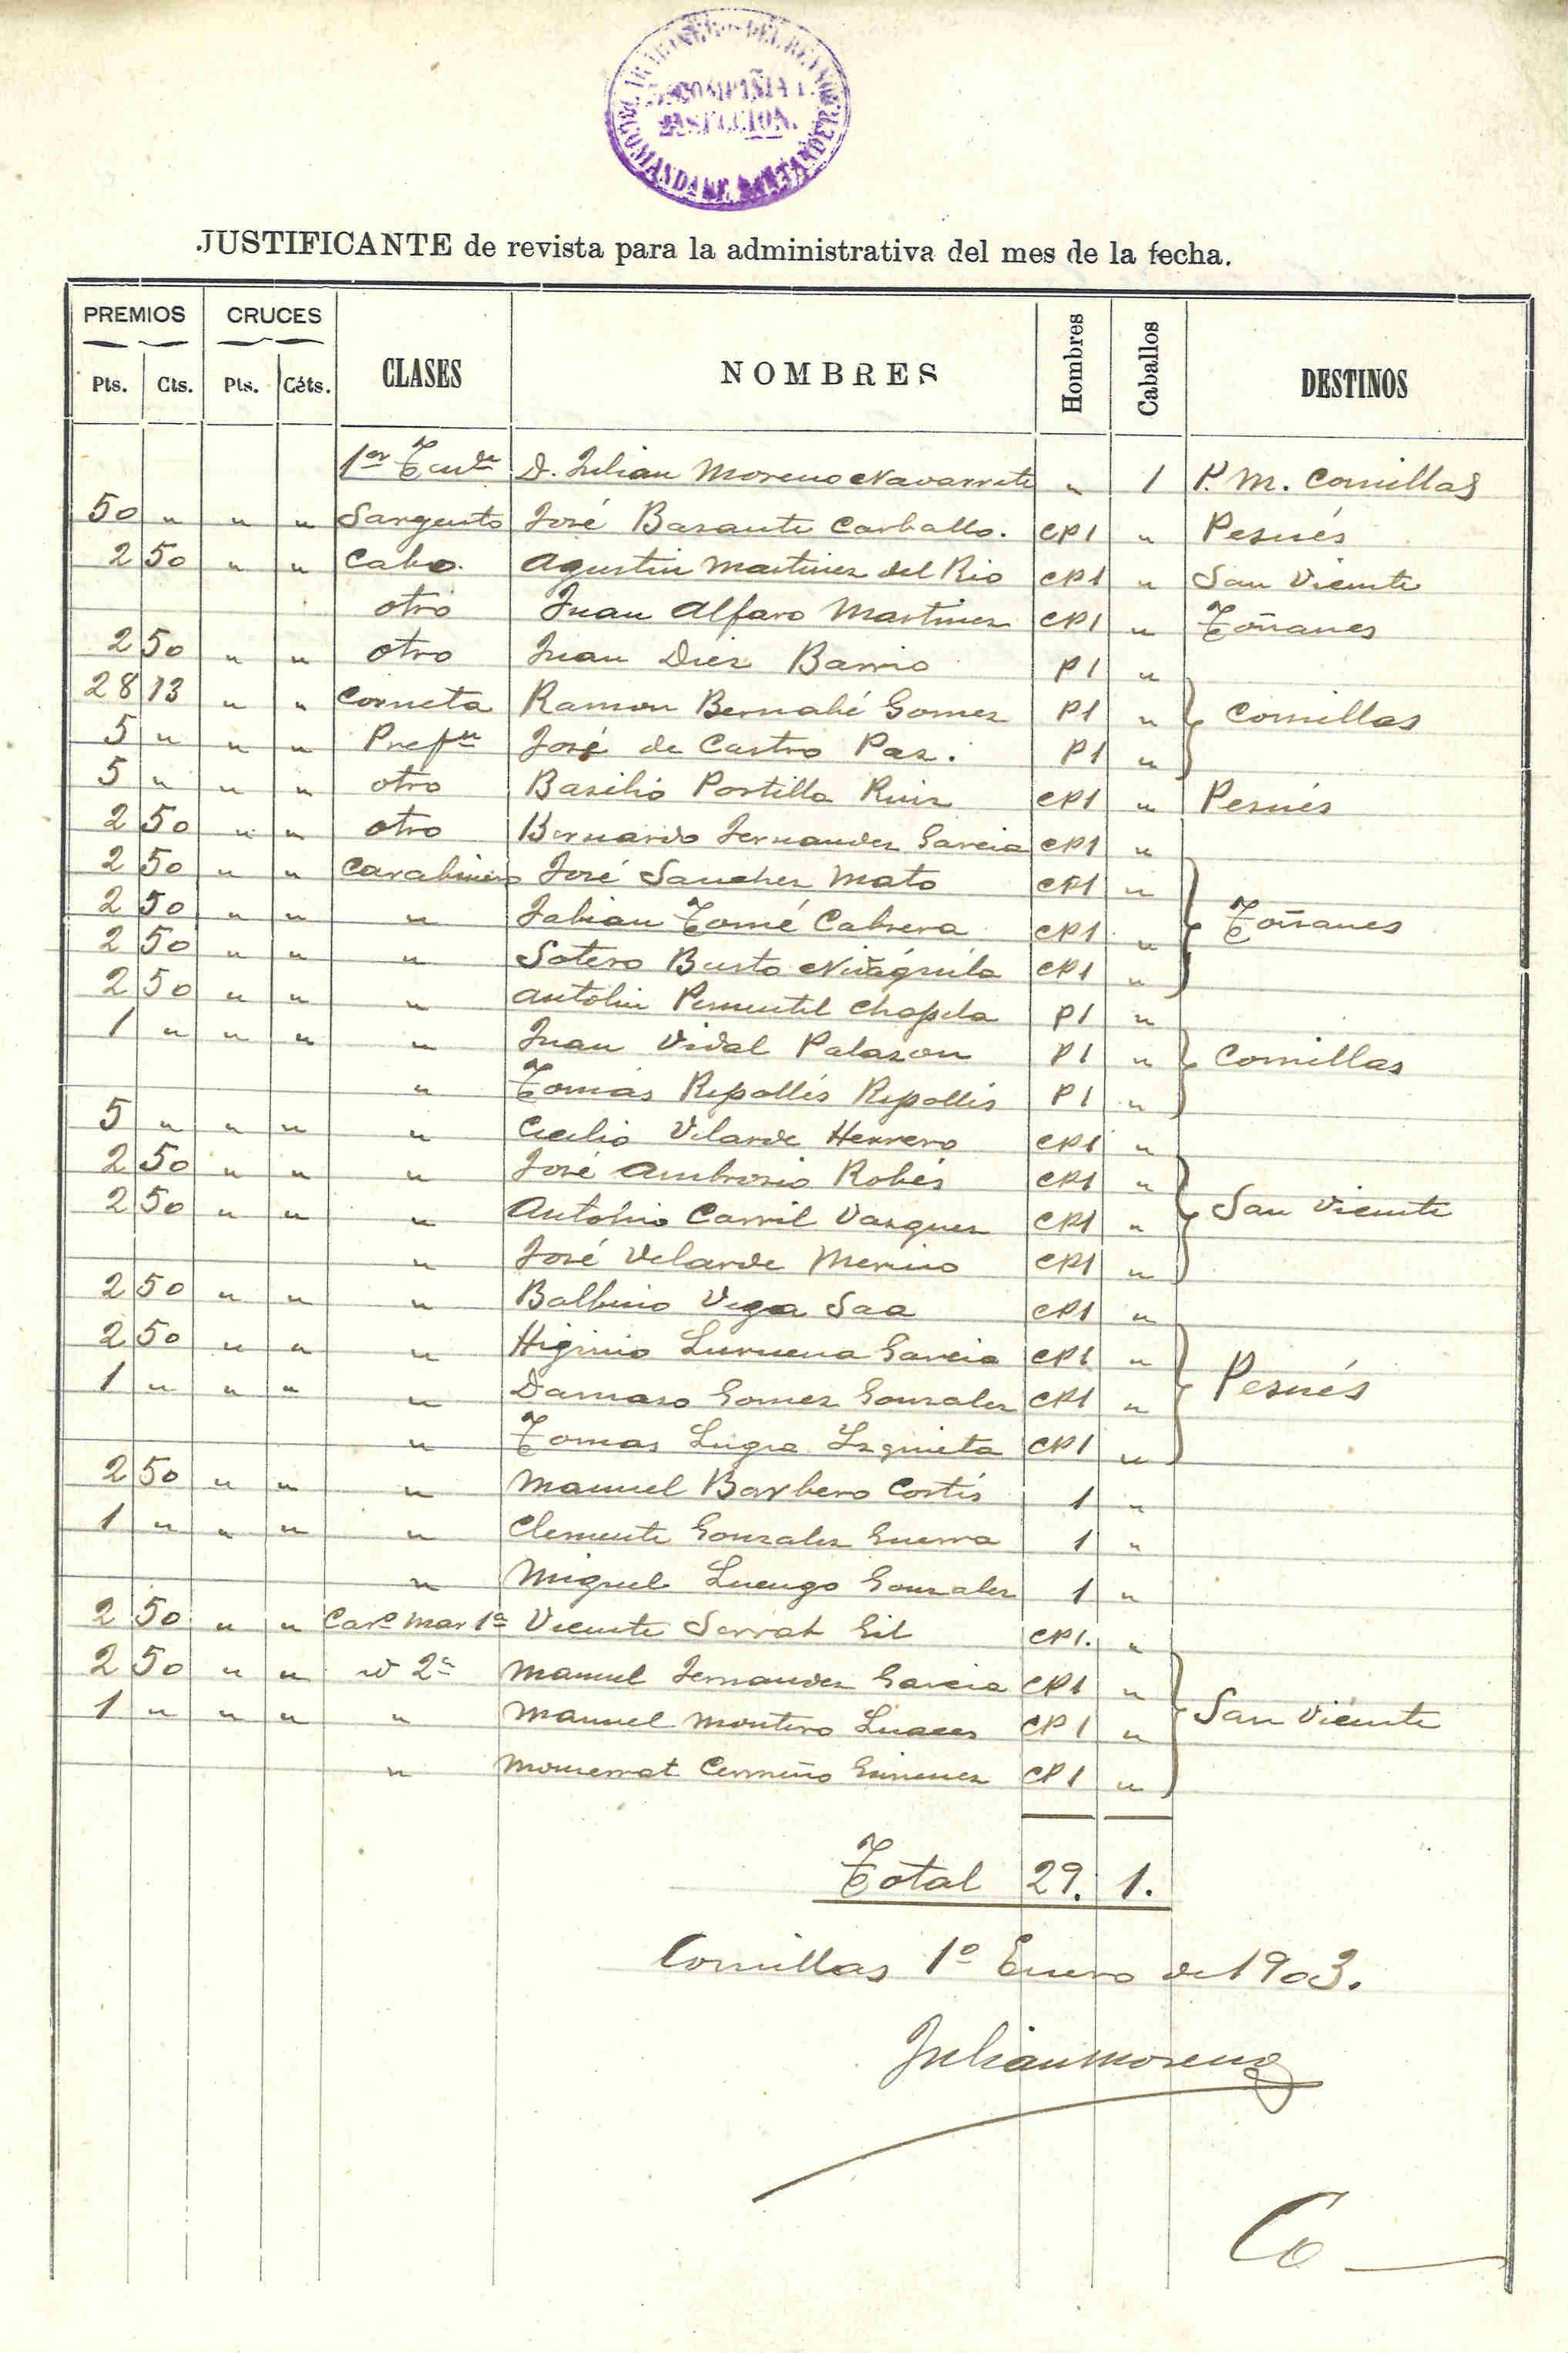 CARABINEROS DEL REYNO
COMPAÑIA
SECCION.
COMAND DE SANTANDER
JUSTIFICANTE de revista para la administrativa del mes de la fecha.
PREMIOS CRUCES CLASES NOMBRES Hombres Caballos DESTINOS
Pts. Cts. Pts. Céts.
1er Tente D. Julian Moreno Navarrete " 1 P.M. Comillas
50 " " " Sargento José Basante Carballo. CP1 " Pesués
2 50 " " Cabo. Agustin Martinez del Rio CP1 " San Vicente
otro Juan Alfaro Martinez CP1 " Toñanes
2 50 " " otro Juan Diez Barrio P1 "
28 13 " " Corneta Ramon Bernabé Gomez P1 " Comillas
5 " " " Prefte José de Castro Paz. P1 "
5 " " " otro Basilio Portilla Ruiz CP1 " Pesués
2 50 " " otro Bernardo Fernandez Garcia CP1 "
2 50 " " Carabinero José Sanchez Mato CP1 "
2 50 " " " Fabian Tomé Cabrera CP1 " Toñanes
2 50 " " " Sotero Busto CP1 "
2 50 " " " Antolin Pementel Chapela P1 "
1 " " " " Juan Vidal Palazon P1 " Comillas
" Tomás Ripollés Ripollés P1 "
5 " " " " Cecilio Velarde Herrero CP1 "
2 50 " " " José Ambrosio Robés CP1 "
2 50 " " " Antonio Carril Vazquez CP1 " San Vicente
" José Velarde Merino CP1 "
2 50 " " " Balbino Vega Saa CP1 "
2 50 " " " Higinio Lurueña Garcia CP1 "
1 " " " " Damaso Gomez Gonzalez CP1 " Pesués
" Tomas CP1 "
2 50 " " " Manuel Barbero Cortés 1 "
1 " " " " Clemente Gonzalez Guerra 1 "
" Miguel Luengo Gonzalez 1 "
2 50 " " Carº Mar 1ª Vicente Serrat Gil CP1. "
2 50 " " id 2ª Manuel Fernandez Garcia CP1 "
1 " " " " Manuel Montero Luaces CP1 " San Vicente
" Monserrat Cermeño Gimenez CP1 "
Total 29. 1.
Comillas 1º Enero de 1903.
Julian Moreno